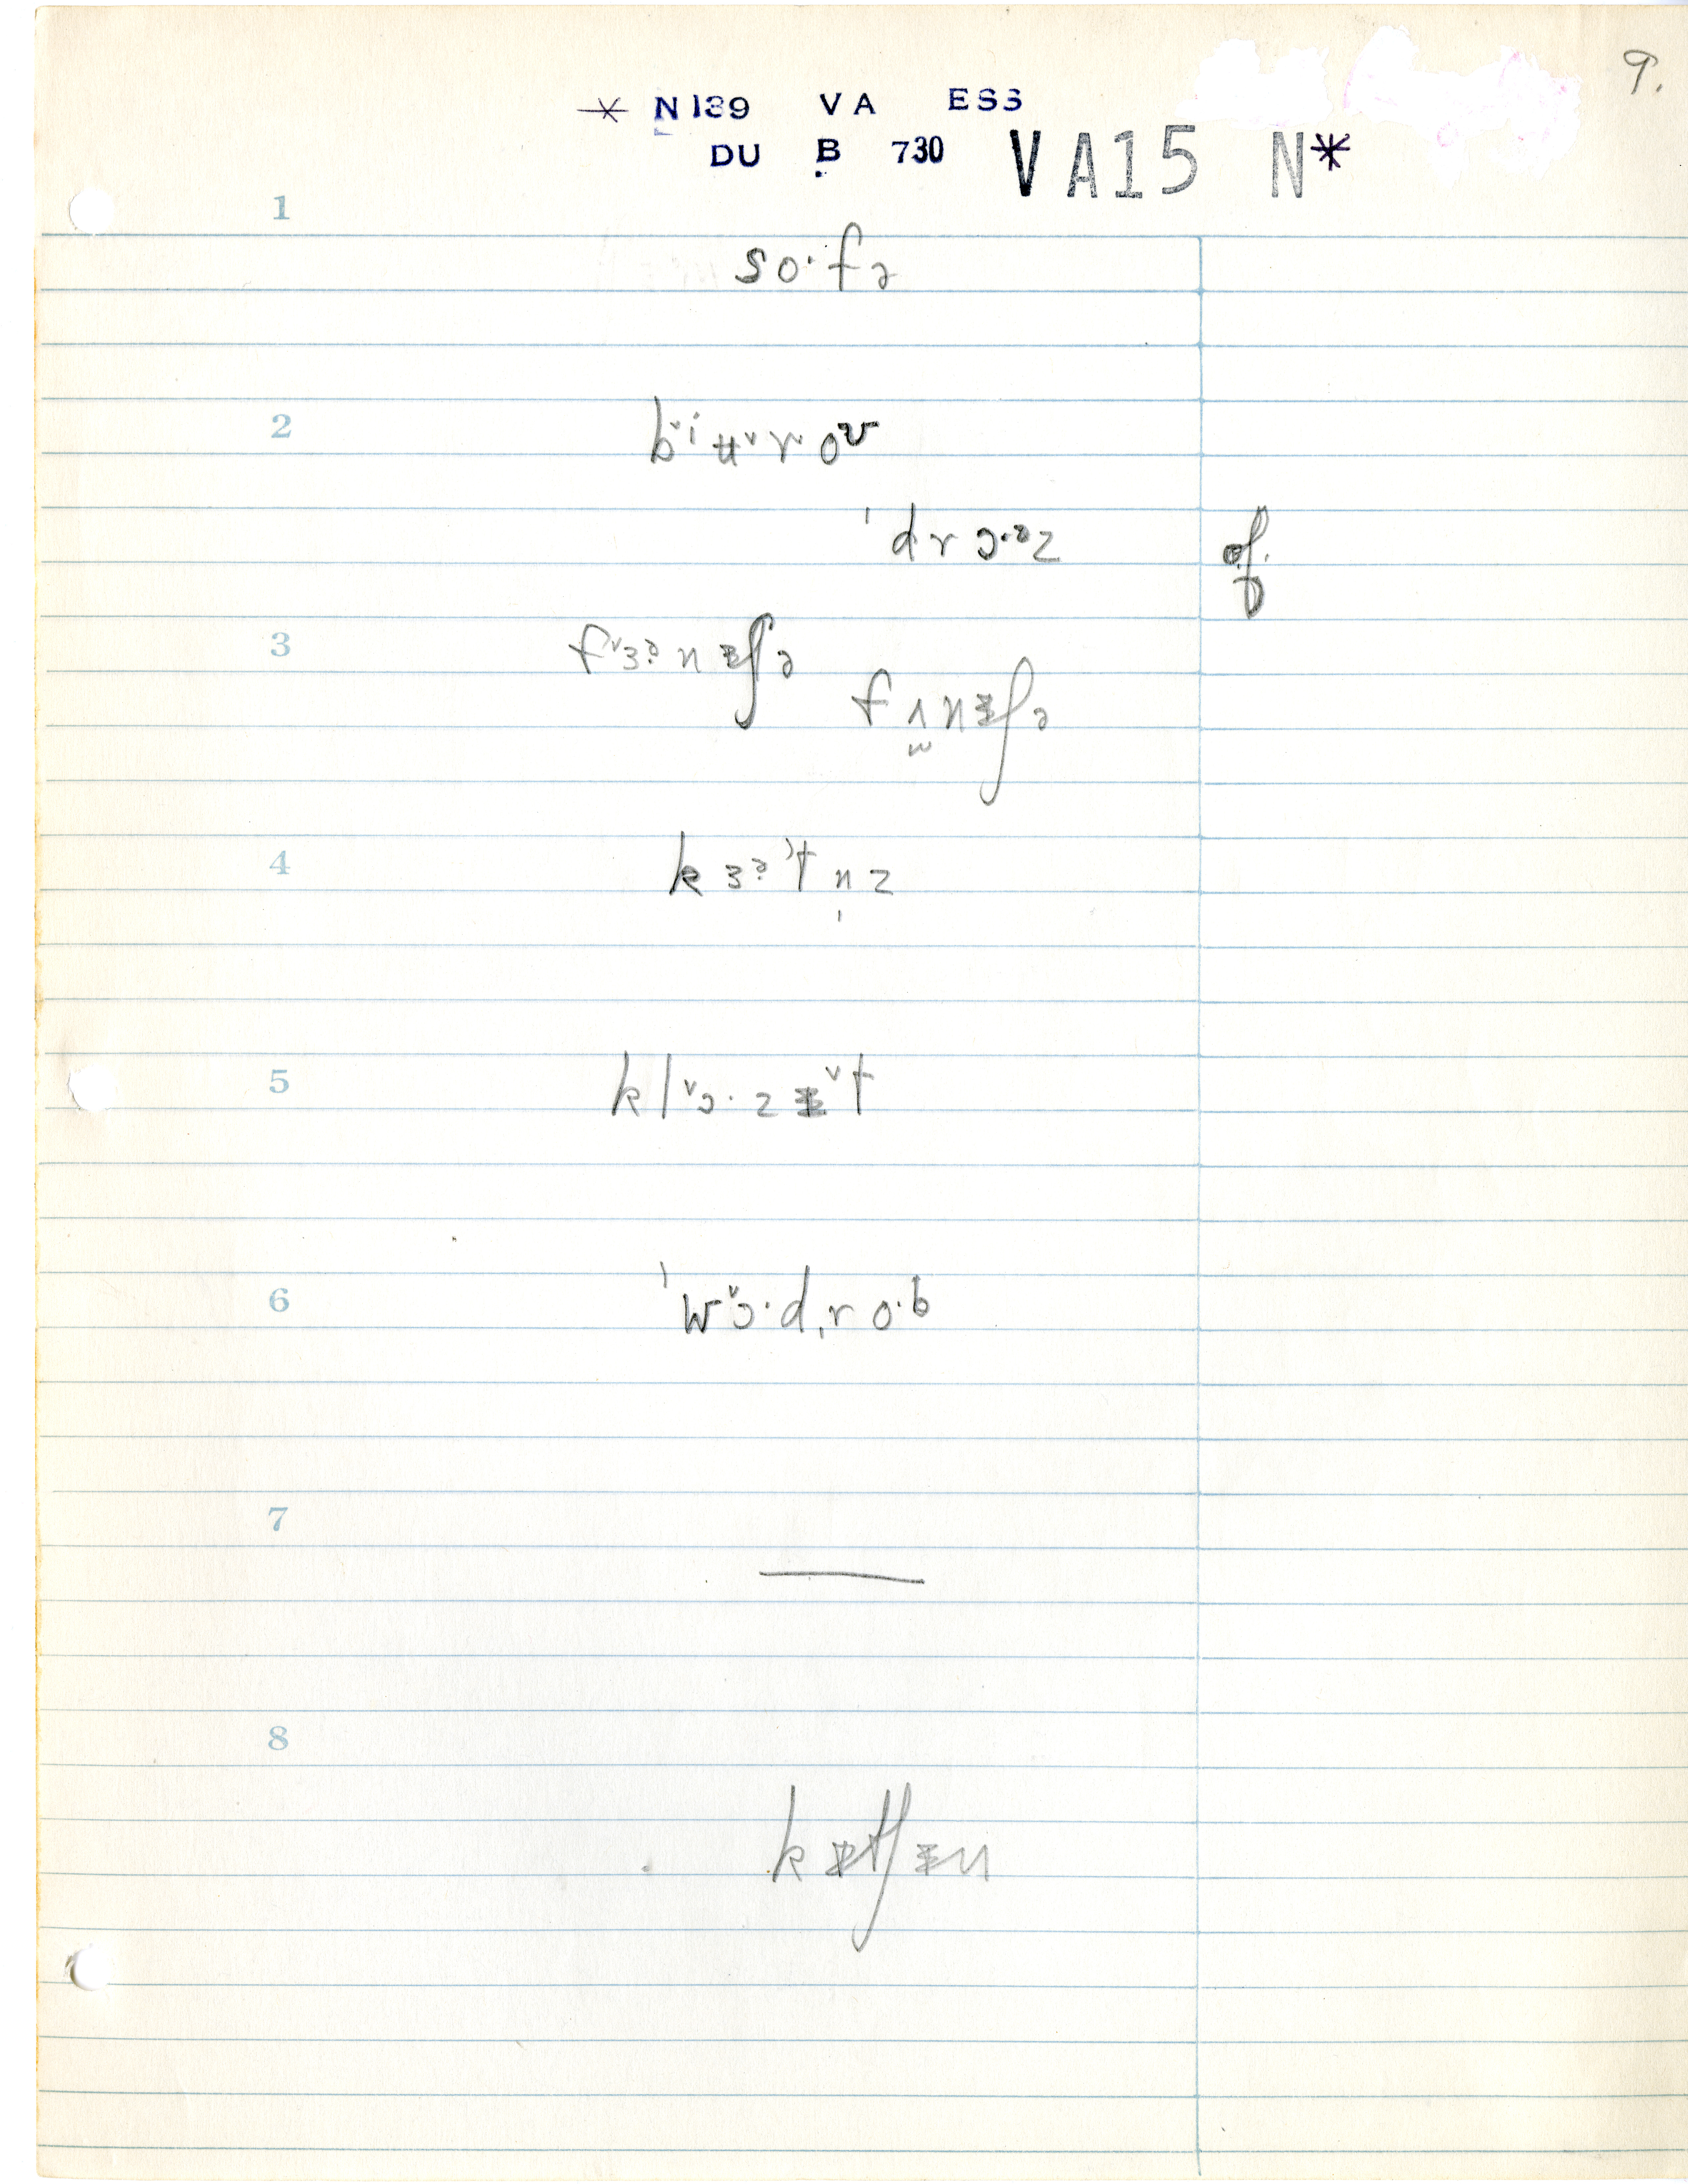 9.
* N 139 VA ESS
DU B 730 VA15 N*
1
so·fə
2
b˅iʉ˅r˅oʊ
ˈdrɔ·ᵊz
3
f˅ɜᵊnɪ̵ʃə
fʌnɪ̵ʃə
4
kɜᵊ˒tn̩z
5
kl˅ɔ·zɪ̵˅t
6
ˈw˅ɔ·dˌro·b
7
—
8
kɪ̵tʃɪ̵n